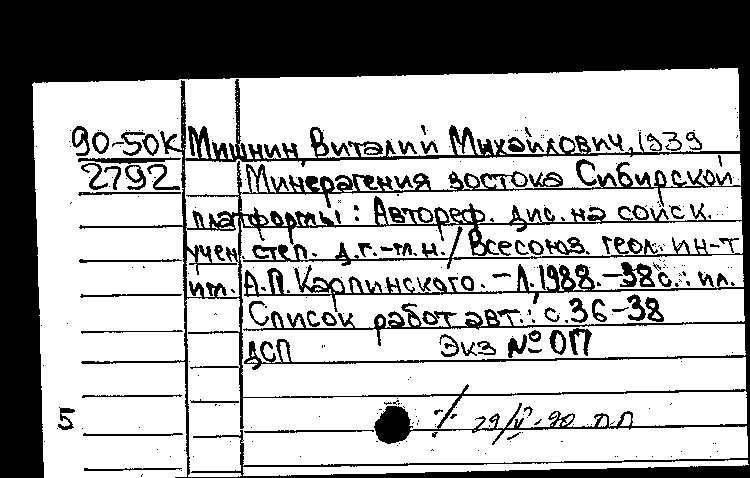 90-50К Мишнин, Виталий Михайлович, 1939
2792 Минерагения востока Сибирской
платформы : Автореф. дис. на соиск.
учен. степ. д.г.-м.н. / Всесоюз. геол. ин-т
им. А.П. Карпинского. - Л. 1988. - 38с. : ил.
Список работ авт.: с. 36-38
ДСП Экз № ОП
5 29/V-90 ПП